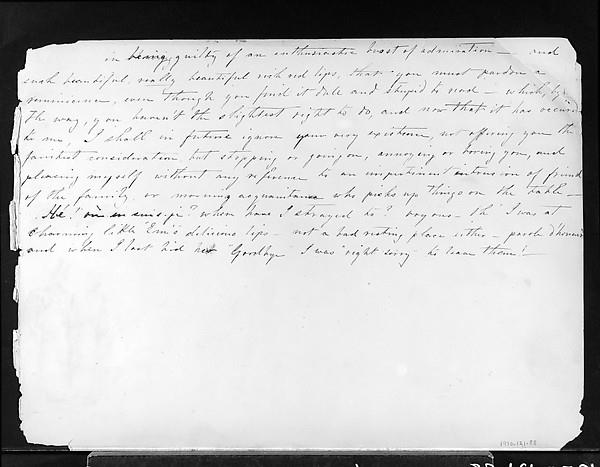 in being guilty of an enthusiastic burst of admiration — and
such beautiful, really beautiful rich red lips, that you must pardon a
reminiscence, even though you find it dull and stupid to read — which, by
the way, you haven't the slightest right to do, and now that it has occurred
to me, I shall in future ignore your very existence, not offering you the
faintest consideration but stopping or going on, annoying or boring you, and
pleasing myself without any reference to an impertinent intrusion of friend
of the family, or morning acquaintance who picks up things on the table —
He! ou en suis-je? where have I strayed to? — Oh I was at
charming little Em's delicious lips — not a bad resting place either — parole d'honneur
and when I last bid her "Goodbye" I was "right sorry" to leave them! —
1970.121.88